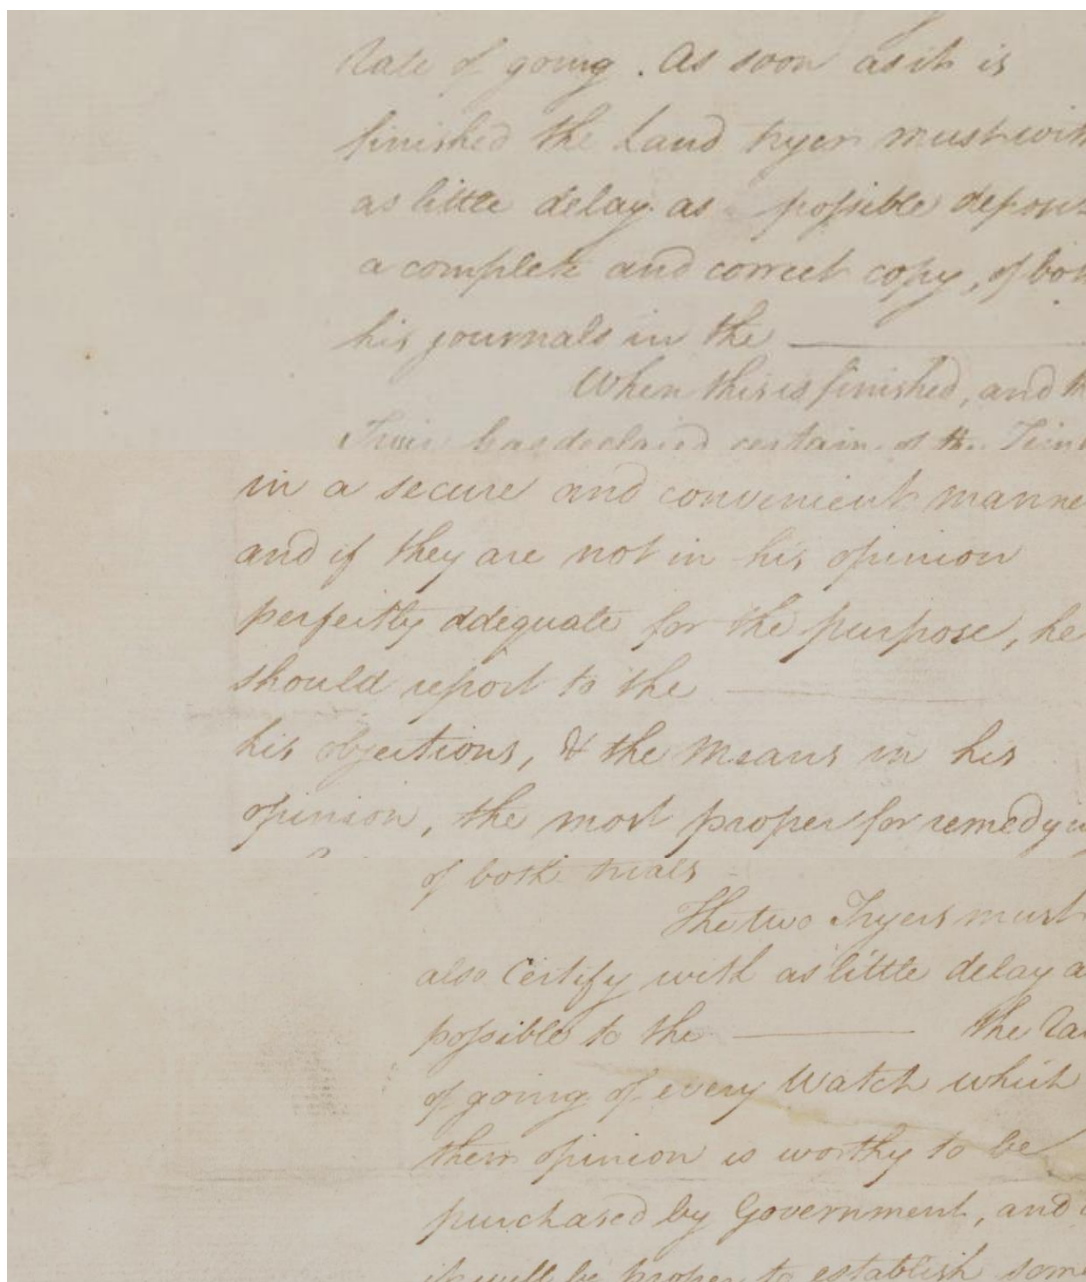 Rate of going. As soon as it is
finished the Land tryer must with
as little delay as possible depos
a complete and correct copy, of bo
his journals in the
When this is finished, and th
has declared certain of the
in a secure and convenient manne
and if they are not in his opinion
perfectly adequate for the purpose, he
should report to the
his objections, & the means in his
opinion, the most proper for remedy
of both trials
The two Tryers must
also Certify with as little delay a
possible to the the Ra
of going of every Watch which
their opinion is worthy to be
purchased by Government, and
it will be proper to establish som